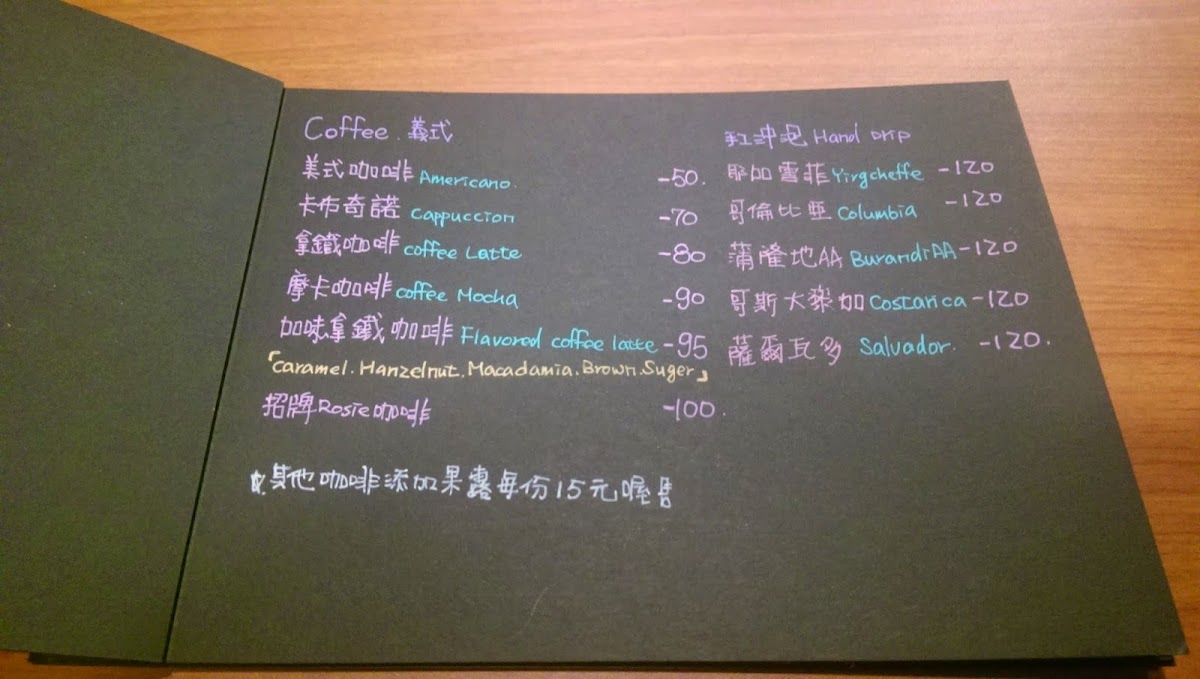 Coffee. 義式
美式咖啡 Americano. -50.
卡布奇諾 Cappuccion -70
拿鐵咖啡 coffee Latte -80
摩卡咖啡 coffee Mocha -90
加味拿鐵咖啡 Flavored coffee latte -95
「caramel. Hanzelnut. Macadamia. Brown. Suger」
招牌Rosie咖啡 -100.
☆其他咖啡添加果露每份15元喔!!
手沖泡 Hand Drip
耶加雪菲 Yirgcheffe -120
哥倫比亞 Columbia -120
蒲隆地AA BurandiAA -120
哥斯大黎加 Costarica -120
薩爾瓦多 Salvador. -120.